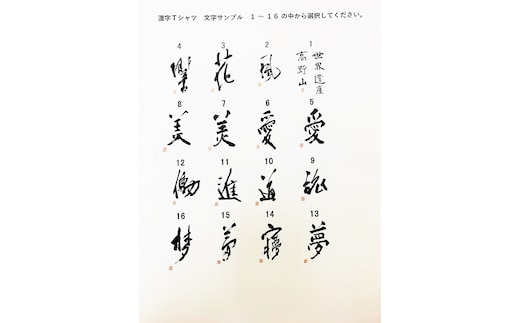 漢字Tシャツ 文字サンプル 1 ～ 16 の中から選択してください。
1
世界遺産
高野山
2
風
3
花
4
5
愛
6
愛
7
美
8
美
9
10
道
11
進
12
働
13
夢
14
15
夢
16